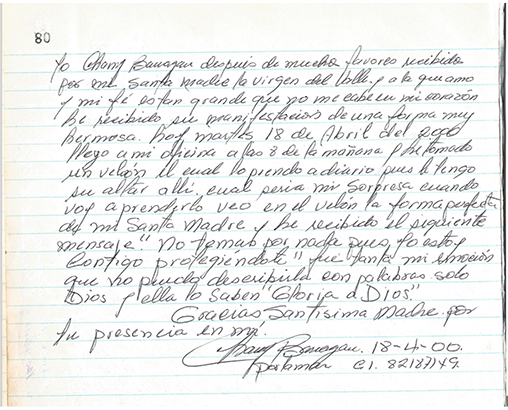 80
Yo Chary Banagan después de mucho favores recibido
por mi Santa Madre la virgen del Valle y a la que amo
y mi fé es tan grande que no me cabe en mi corazón
he recibido su manifestación de una forma muy
hermosa. Hoy martes 18 de Abril del 2000
llego a mi oficina a las 8 de la mañana y he tomado
un velón el cual lo prendo a diario pues le tengo
su altar allí, cual seria mi sorpresa cuando
voy a prenderlo veo en el velón la forma perfecta
de mi Santa Madre y he recibido el siguiente
mensaje "No temas por nada pues, yo estoy
Contigo protegiendote" fue tanta mi emoción
que no puedo describirla con palabras solo
Dios y ella lo saben "Gloria a Dios."
Gracias Santisima Madre por
tu presencia en mi.
18-4-00.
Porlamar C.I. 8218749.